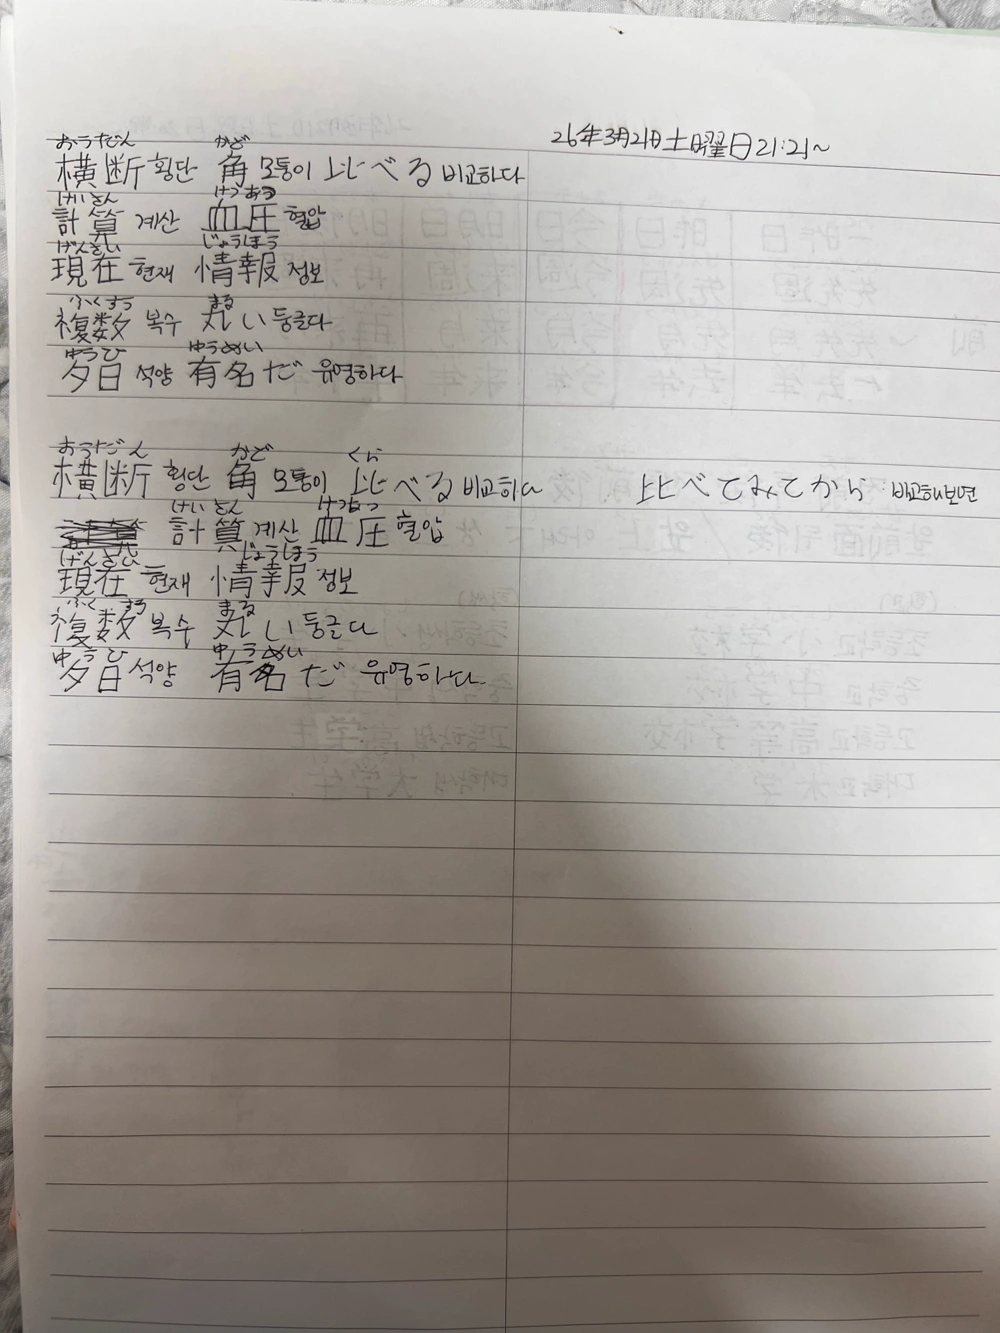 26年3月21日土曜日21:21~
おうだん かど
横断 횡단 角 모퉁이 比べる 비교하다
けいさん けつあつ
計算 계산 血圧 혈압
げんざい じょうほう
現在 현재 情報 정보
ふくすう まる
複数 복수 丸い 둥글다
ゆうひ ゆうめい
夕日 석양 有名だ 유명하다
おうだん かど くら
横断 횡단 角 모퉁이 比べる 비교하다 比べてみてから 비교해보면
けいさん けつあつ
計算 계산 血圧 혈압
げんざい じょうほう
現在 현재 情報 정보
ふくすう まる
複数 복수 丸い 둥글다
ゆうひ ゆうめい
夕日 석양 有名だ 유명하다